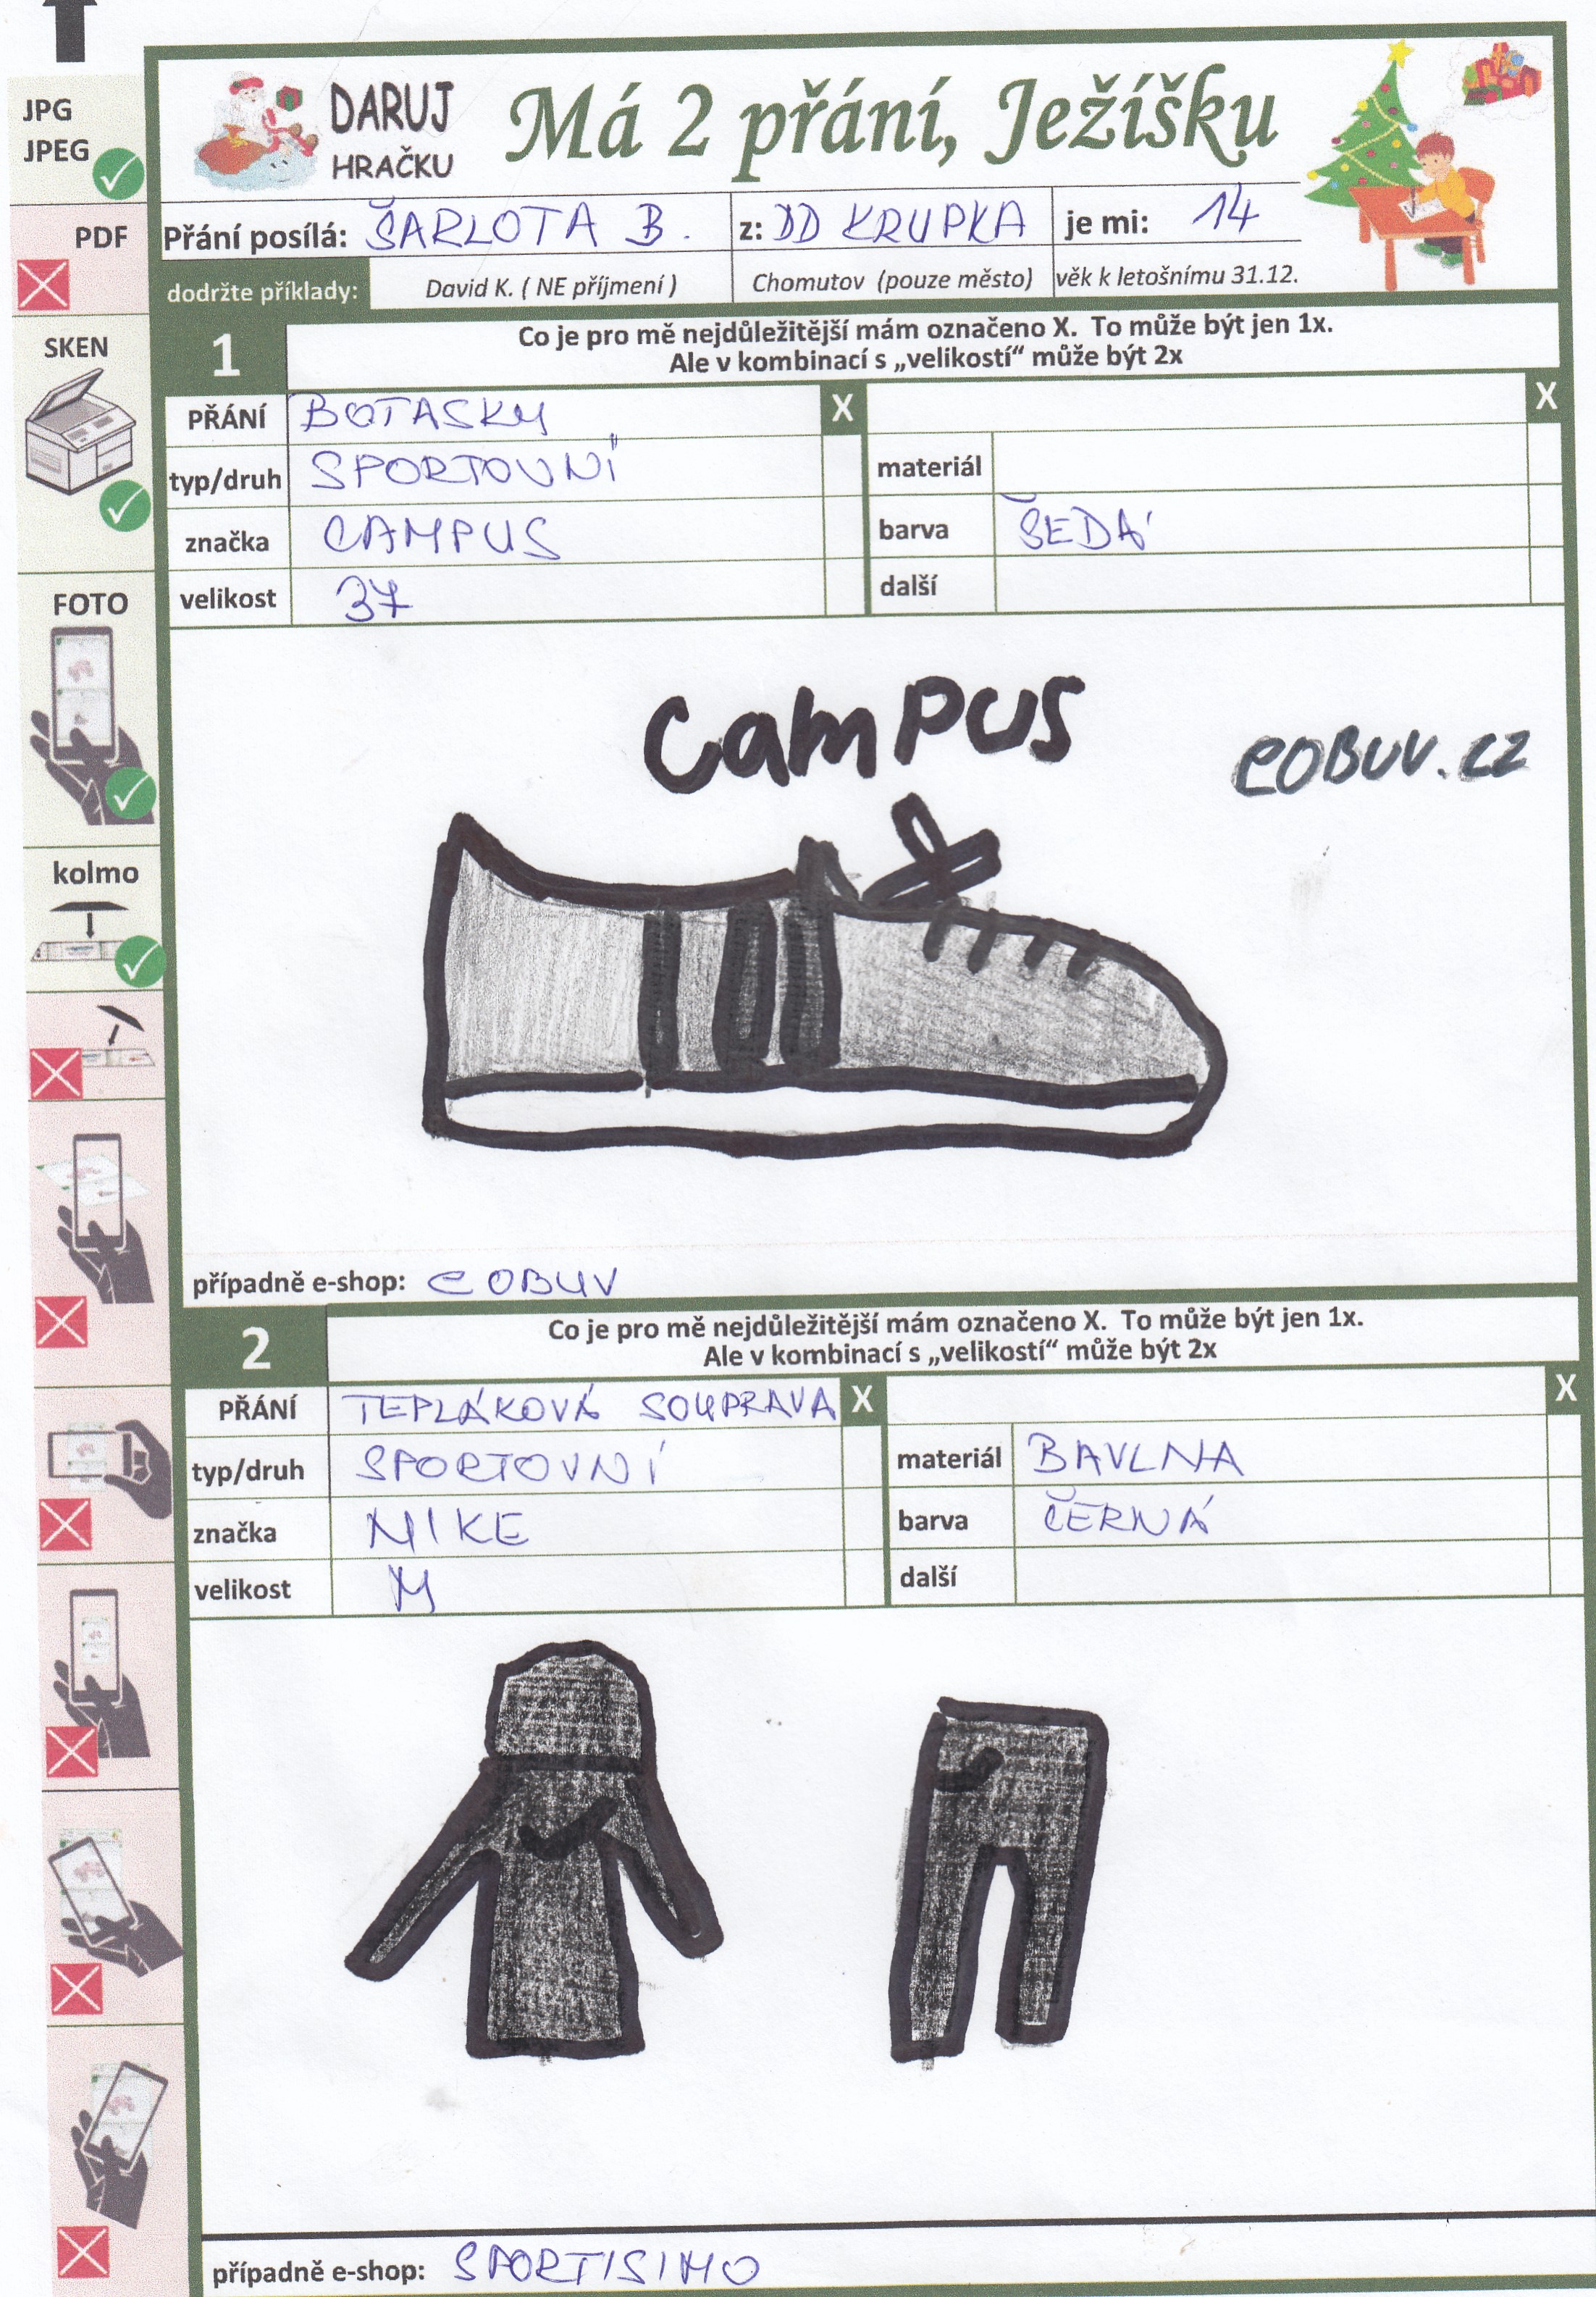 JPG
JPEG
PDF
SKEN
FOTO
kolmo
DARUJ
HRAČKU
Má 2 přání, Ježíšku
Přání posílá: ŠARLOTA B. z: DD KRUPKA je mi: 14
dodržte příklady: David K. ( NE příjmení ) Chomutov (pouze město) věk k letošnímu 31.12.
1 Co je pro mě nejdůležitější mám označeno X. To může být jen 1x.
Ale v kombinací s „velikostí“ může být 2x
PŘÁNÍ BOTASKY X X
typ/druh SPORTOVNÍ materiál
značka CAMPUS barva ŠEDÁ
velikost 37 další
Campus
eOBUV.CZ
případně e-shop: eOBUV
2 Co je pro mě nejdůležitější mám označeno X. To může být jen 1x.
Ale v kombinací s „velikostí“ může být 2x
PŘÁNÍ TEPLÁKOVÁ SOUPRAVA X X
typ/druh SPORTOVNÍ materiál BAVLNA
značka NIKE barva ČERNÁ
velikost M další
případně e-shop: SPORTISIMO